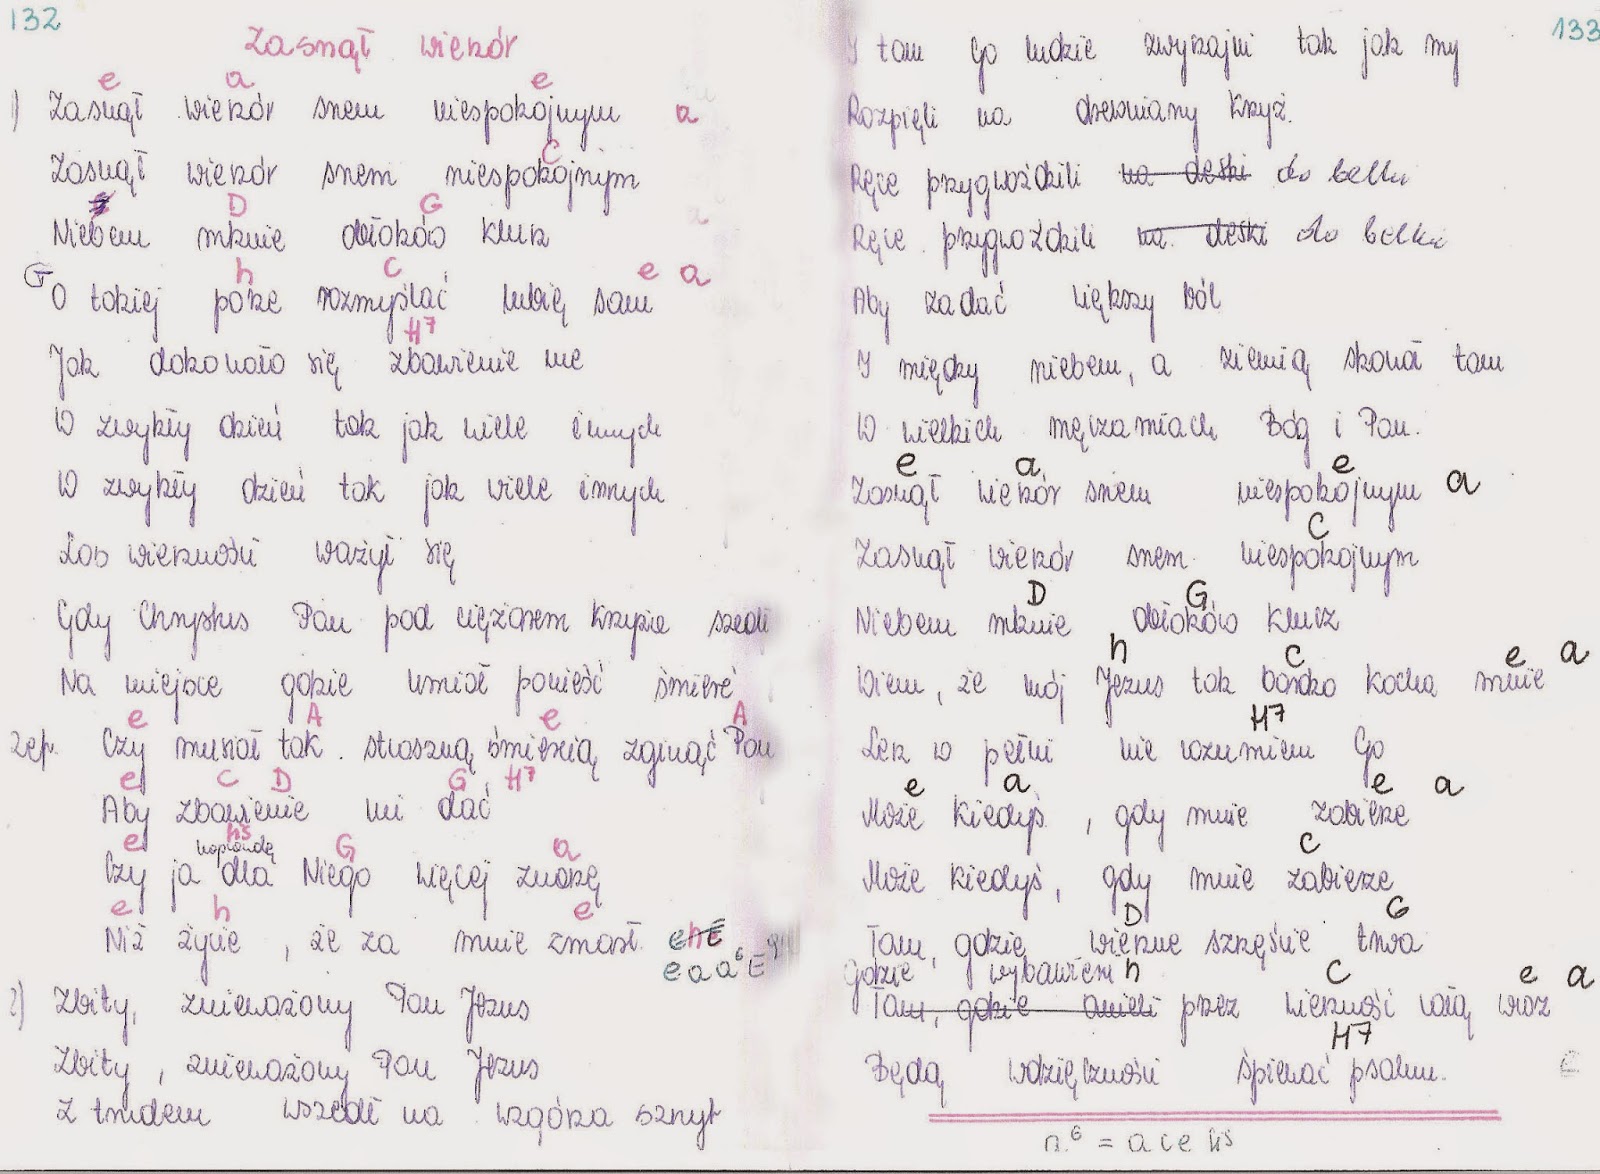 132
Zasnął wieczór
e a e
1) Zasnął wieczór snem niespokojnym a
C
Zasnął wieczór snem niespokojnym
D G
Niebem mknie obłoków klucz
G h C e a
O takiej porze rozmyślać lubię sam
H7
Jak dokonało się zbawienie me
W zwykły dzień tak jak wiele innych
W zwykły dzień tak jak wiele innych
Los wieczności ważył się
Gdy Chrystus Pan pod ciężarem krzyża szedł
Na miejsce gdzie umiał ponieść śmierć
e A e A
Czy musiał tak straszną śmiercią zginąć Pan
e C D G H7
Aby zbawienie mi dać
e G a
naprawdę
Czy ja dla Niego więcej znaczę
e h e
Niż życie, że za mnie zmarł
e a a6 E
2) Zbity, znieważony Pan Jezus
Zbity, znieważony Pan Jezus
Z trudem wszedł na wzgórza szczyt
133
I tam Go ludzie zwyczajni tak jak my
Rozpięli na drewniany krzyż.
Ręce przygwoździli na deski do belki
Ręce przygwoździli na deski do belki
Aby zadać większy ból
I między niebem, a ziemią skonał tam
W wielkich męczarniach Bóg i Pan.
e a e
Zasnął wieczór snem niespokojnym a
C
Zasnął wieczór snem niespokojnym
D G
Niebem mknie obłoków klucz
h C e a
Wiem, że mój Jezus tak bardzo kocha mnie
H7
Lecz w pełni nie rozumiem Go
e a e a
Może kiedyś, gdy mnie zabierze
C
Może kiedyś, gdy mnie zabierze
D G
Tam, gdzie wieczne szczęście trwa
Gdzie wybawieni h C e a
Tam, gdzie anieli przez wieczność całą wraz
H7
Będą wdzięczności śpiewać psalm.
= a c e fis